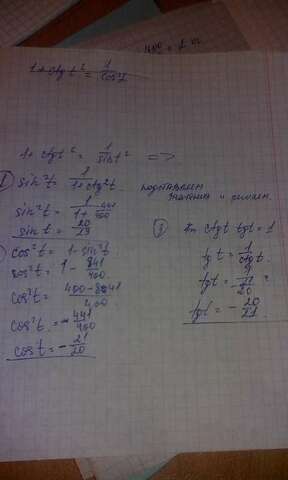 1+ctg t² = 1/cos²t
1+ ctgt² = 1/sint² =>
1) sin²t = 1/1+ctg²t
подставляем значения и решаем.
sin²t = 1/1+441/400
sin t = 20/29
cos²t = 1-sin²t
cos²t = 1 - 841/400
cos²t = 400-841/400
cos²t = -441/400
cos t = -21/20
3) ctgt tgt = 1
tg t = 1/ctgt
tgt = 1/-21/20 =
tgt = -20/21.